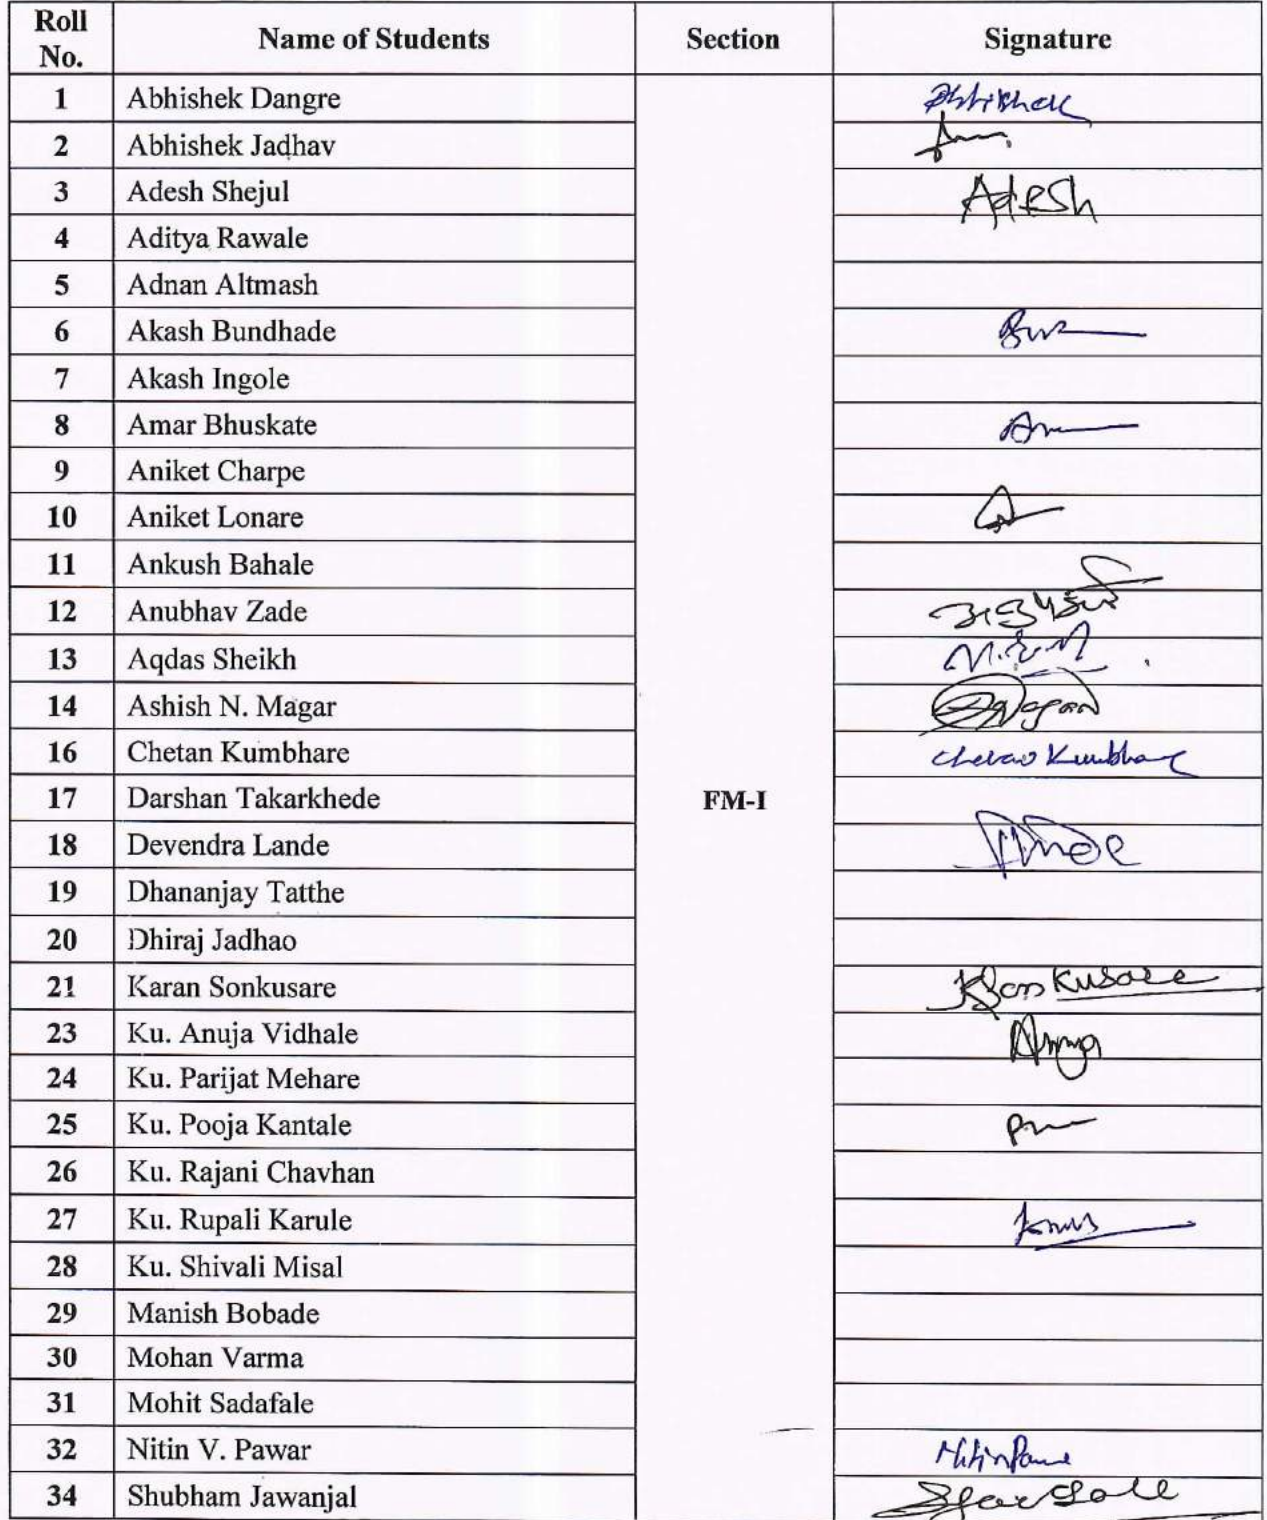 Roll No. Name of Students Section Signature
1 Abhishek Dangre Abhishek
2 Abhishek Jadhav
3 Adesh Shejul Adesh
4 Aditya Rawale
5 Adnan Altmash
6 Akash Bundhade
7 Akash Ingole
8 Amar Bhuskate
9 Aniket Charpe
10 Aniket Lonare
11 Ankush Bahale
12 Anubhav Zade
13 Aqdas Sheikh
14 Ashish N. Magar
16 Chetan Kumbhare Chetan
17 Darshan Takarkhede FM-I
18 Devendra Lande
19 Dhananjay Tatthe
20 Dhiraj Jadhao
21 Karan Sonkusare
23 Ku. Anuja Vidhale
24 Ku. Parijat Mehare
25 Ku. Pooja Kantale
26 Ku. Rajani Chavhan
27 Ku. Rupali Karule
28 Ku. Shivali Misal
29 Manish Bobade
30 Mohan Varma
31 Mohit Sadafale
32 Nitin V. Pawar Nitin
34 Shubham Jawanjal